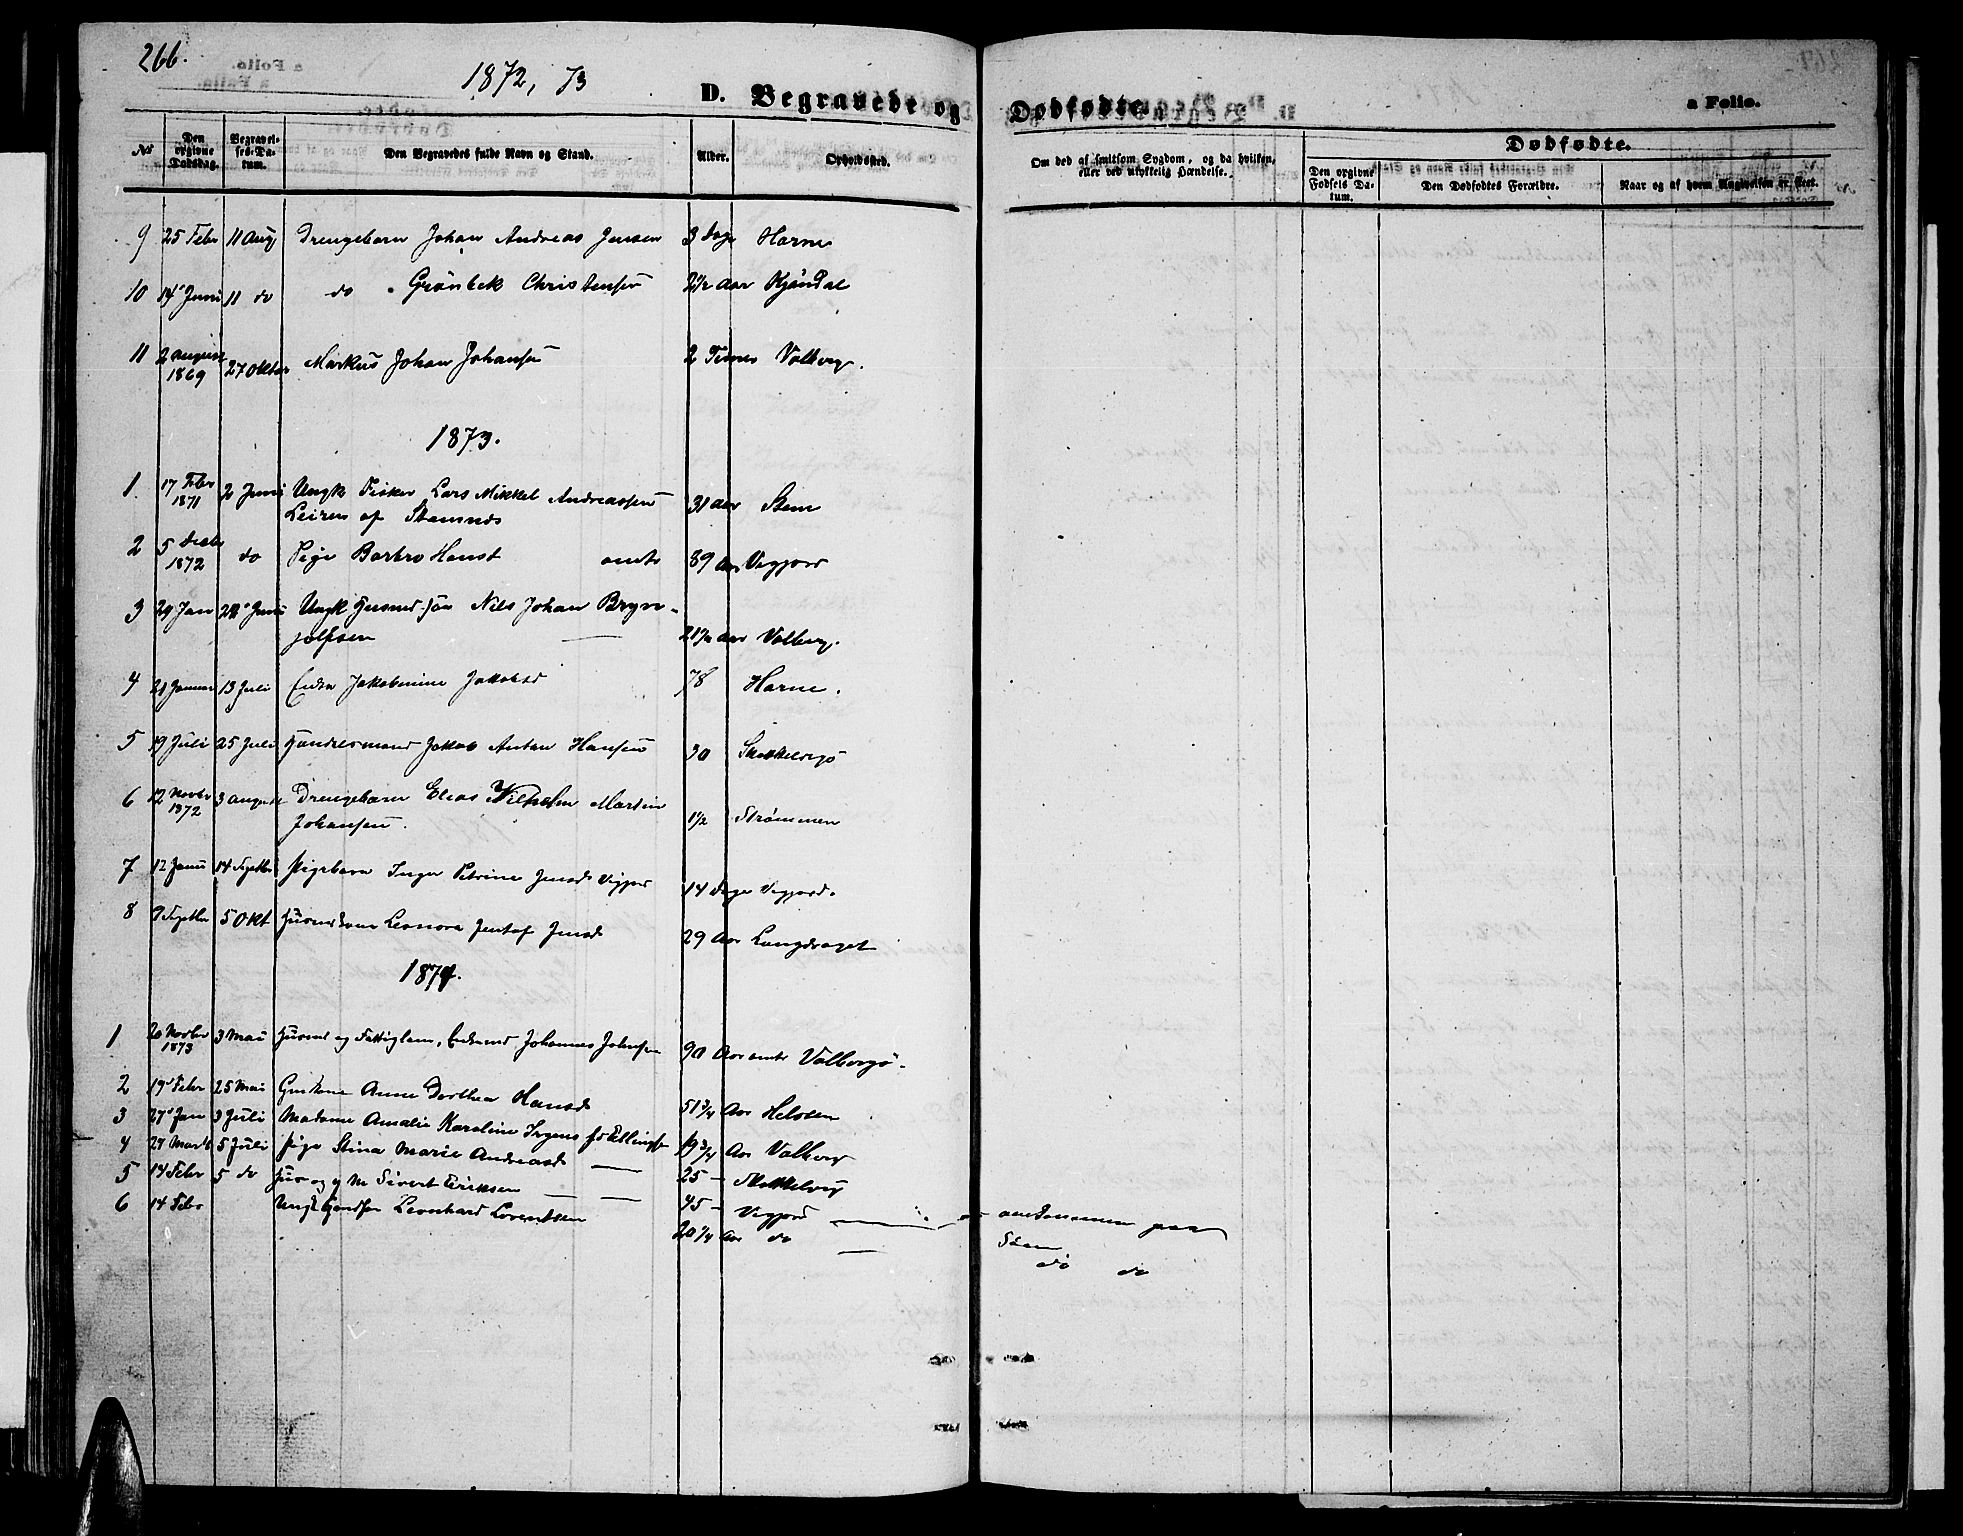 266.
1872, 73
D. Begravede og Dødfødte.
a Folio.
No
Den opgivne Dødsdag.
Begravelses-Datum.
Den Begravedes fulde Navn og Stand.
Alder.
Opholdssted.
Om død af smitsom Sygdom, og da hvilken, eller ved ulykkelig Hændelse.
Dødfødte.
Den opgivne Fødsels Datum.
Den Dødfødtes Forældre.
Naar og af hvem Angivelsen er skeet.
9 25 Febr 11 Aug Drengebarn Johan Andreas Jensen 3 Dage Harne
10 14 Juni 11 do do Grønbek Christensen 2 1/2 Aar
11 2 August 1869 27 Oktbr Markus Johan Johansen 2 Timer Valberg.
1873.
1. 17 Febr 1871 2 Juni Ungk Fisker Lars Mikkel Andreassen
Leiren af Stamsnes 31 aar Steen
2 5 Decbr 1872 do Pige Barbro Hansd 89 Aar Vegjord
3 24 Jan Juni Ungk Nils Johan Bryn-
jolfsen 21 1/2 aar Valberg.
4 Januar 13 Juli Enke Jakobmine Jakobsd 78 Harne.
5 19 Juli 25 Juli Jakob Anton Hansen 30
6 12 Novbr 1872 3 August Drengebarn Elias Wilhelm Martin
Johansen. 1 1/2 Strømmen
7 12 Juni 14 Septbr Pigebarn Inger Petrine Jensd Vegjord 14 Dage Vegjord.
8 9 Septbr 5 Okt Leonora Jensd 29 Aar Langdraget
1874.
1 20 Novbr 1873 3 Mai og Fattiglem, Johannes Johnsen 90 Aar Valbergø.
2 19 Febr 25 Mai Anne Dorthea Hansd 51 3/4 Aar Helosen
3 27 Jan 3 Juli Madame Amalie Karoline Irgens 19 3/4 Aar Valberg
4 24 Marts 5 Juli Pige Stina Marie Andreasd 25
5 14 Febr 5 do Sivert Eriksen 45 Vegjord omkommen paa
Søen
6 14 Febr Ungk Leonhard Lorentsen 20 1/4 Aar do do do